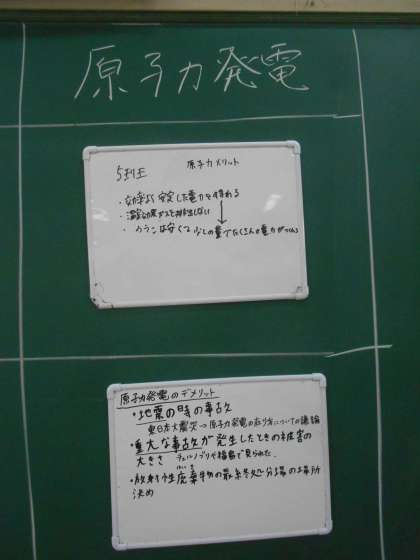 原子力発電
5班 原子力メリット
・効率よく安定した電力を得れる
・温室効果ガスを排出しない
・ウランは安くて少しの量でたくさんの電力がつくれる
原子力発電のデメリット
・地震の時の事故
東日本大震災→原子力発電の在り方についての議論
・重大な事故が発生したときの被害の
大きさ チェルノブイリや福島で見られた。
・放射性廃棄物の最終処分場の場所
はいき
決め